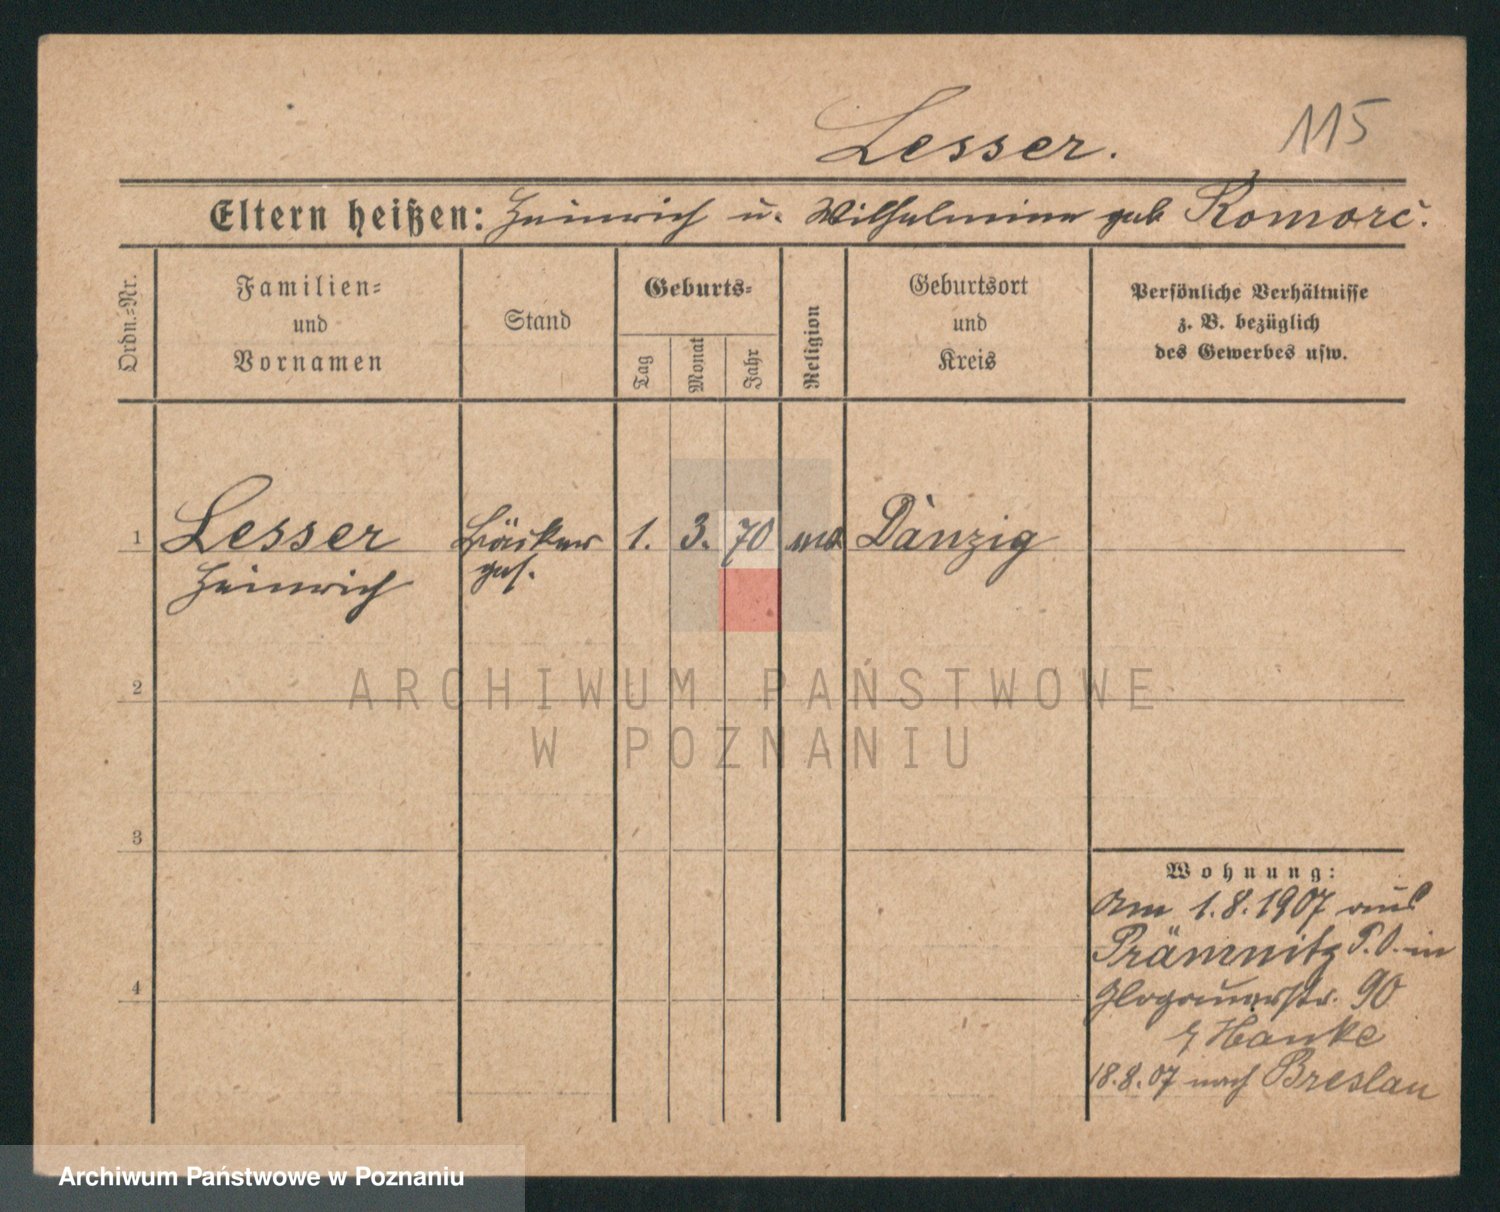 Lesser.
115
Eltern heißen: Heinrich u. Wilhelmine geb Komorč.
Ordn.-Nr.
Familien-
und
Vornamen
Stand
Geburts-
Tag
Monat
Jahr
Religion
Geburtsort
und
Kreis
Persönliche Verhältnisse
z. B. bezüglich
des Gewerbes usw.
1
Lesser Bäcker 1. 3. 70 Danzig
Heinrich ges.
2
ARCHIWUM PAŃSTWOWE
W POZNANIU
3
4
Wohnung:
Am 1.8.1907 aus
Prämnitz P.O. in
Glogauerstr. 90
Hanke
18.8.07 nach Breslau
Archiwum Państwowe w Poznaniu